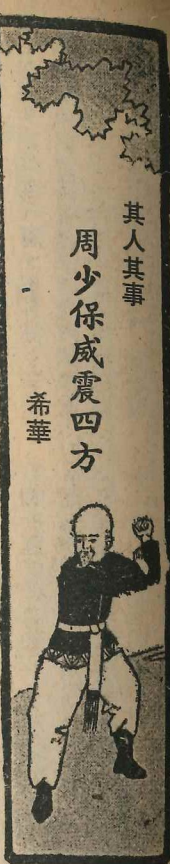 其人其事
周少保威震四方
希華